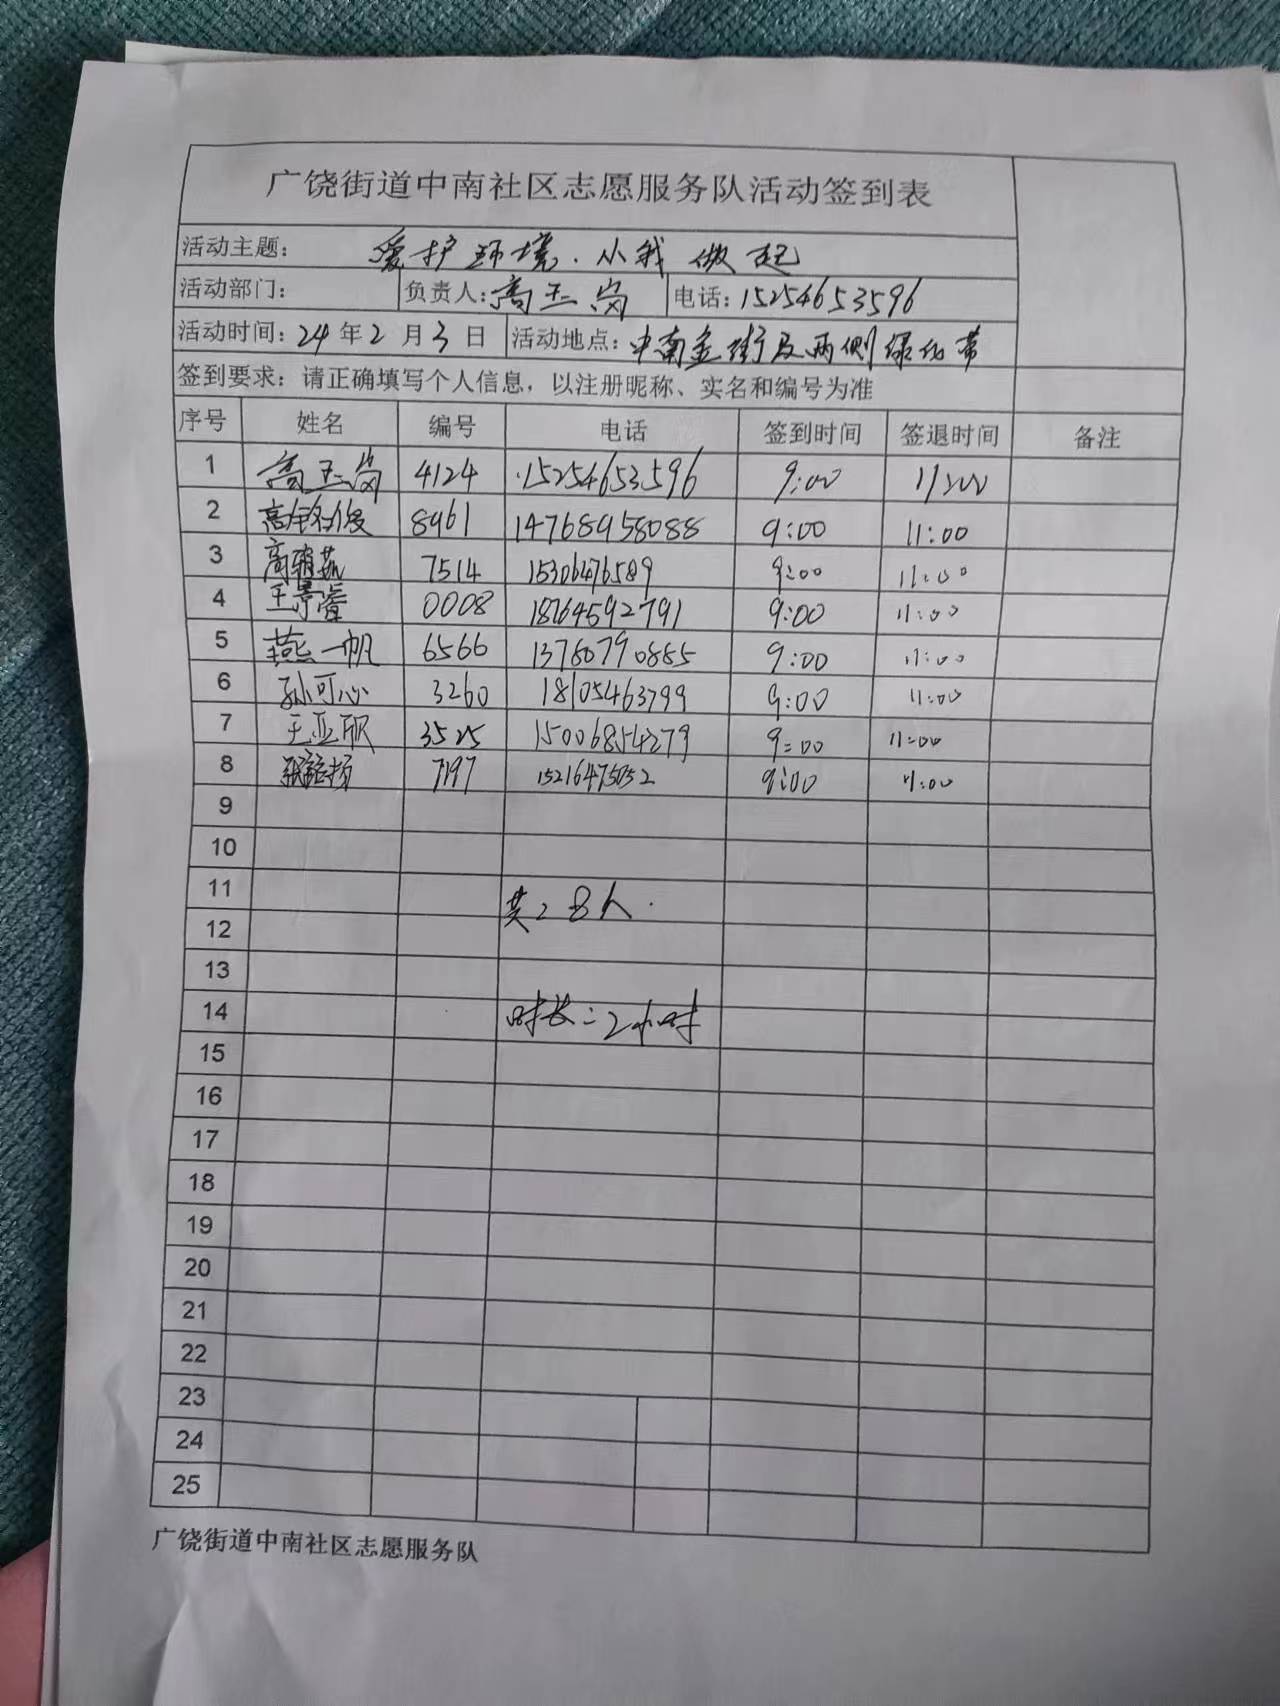 广饶街道中南社区志愿服务队活动签到表
活动主题: 爱护环境.从我做起
活动部门: 负责人:高玉岗 电话:15254653596
活动时间:24年2月3日 活动地点:中南金街及两侧绿化带
签到要求:请正确填写个人信息,以注册昵称、实名和编号为准
序号 姓名 编号 电话 签到时间 签退时间 备注
1 高玉岗 4124 15254653596 9:00 11:00
2 8961 14768958088 9:00 11:00
3 7514 15306476589 9:00 11:00
4 王景睿 0008 18764592791 9:00 11:00
5 燕一帆 6566 13780790885 9:00 11:00
6 孙可心 3260 18105463799 9:00 11:00
7 3525 15006854279 9:00 11:00
8 7197 15216475052 9:00 11:00
9
10
11 共: 8人.
12
13
14 时长:2小时
15
16
17
18
19
20
21
22
23
24
25
广饶街道中南社区志愿服务队